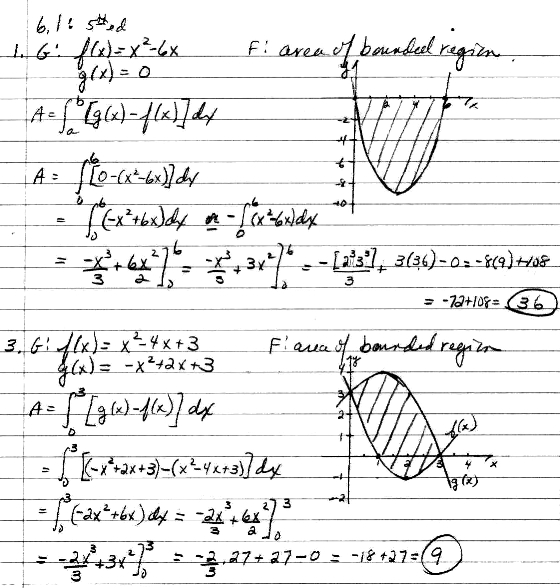 6.1: 5th ed
1. G: f(x) = x²-6x F: area of bounded region
g(x) = 0
A = ∫_a^b [g(x) - f(x)] dx
A = ∫_0^6 [0-(x²-6x)] dx
= ∫_0^6 (-x²+6x) dx or -∫_0^6 (x²-6x) dx
= -x³/3 + 6x²/2 ]_0^6 = -x³/3 + 3x² ]_0^6 = -[2³3³]/3 + 3(36) - 0 = -8(9) + 108
= -72+108 = 36
y
2 4 6 x
-2
-4
-6
-8
-10
3. G: f(x) = x² - 4x + 3 F: area of bounded region
g(x) = -x² + 2x + 3
A = ∫_0^3 [g(x) - f(x)] dx
= ∫_0^3 [(-x²+2x+3) - (x²-4x+3)] dx
= ∫_0^3 (-2x²+6x) dx = -2x³/3 + 6x²/2 ]_0^3
= -2x³/3 + 3x² ]_0^3 = -2/3 · 27 + 27 - 0 = -18 + 27 = 9
y
4
3
2
1
f(x)
1 2 3 4 x
g(x)
-1
-2